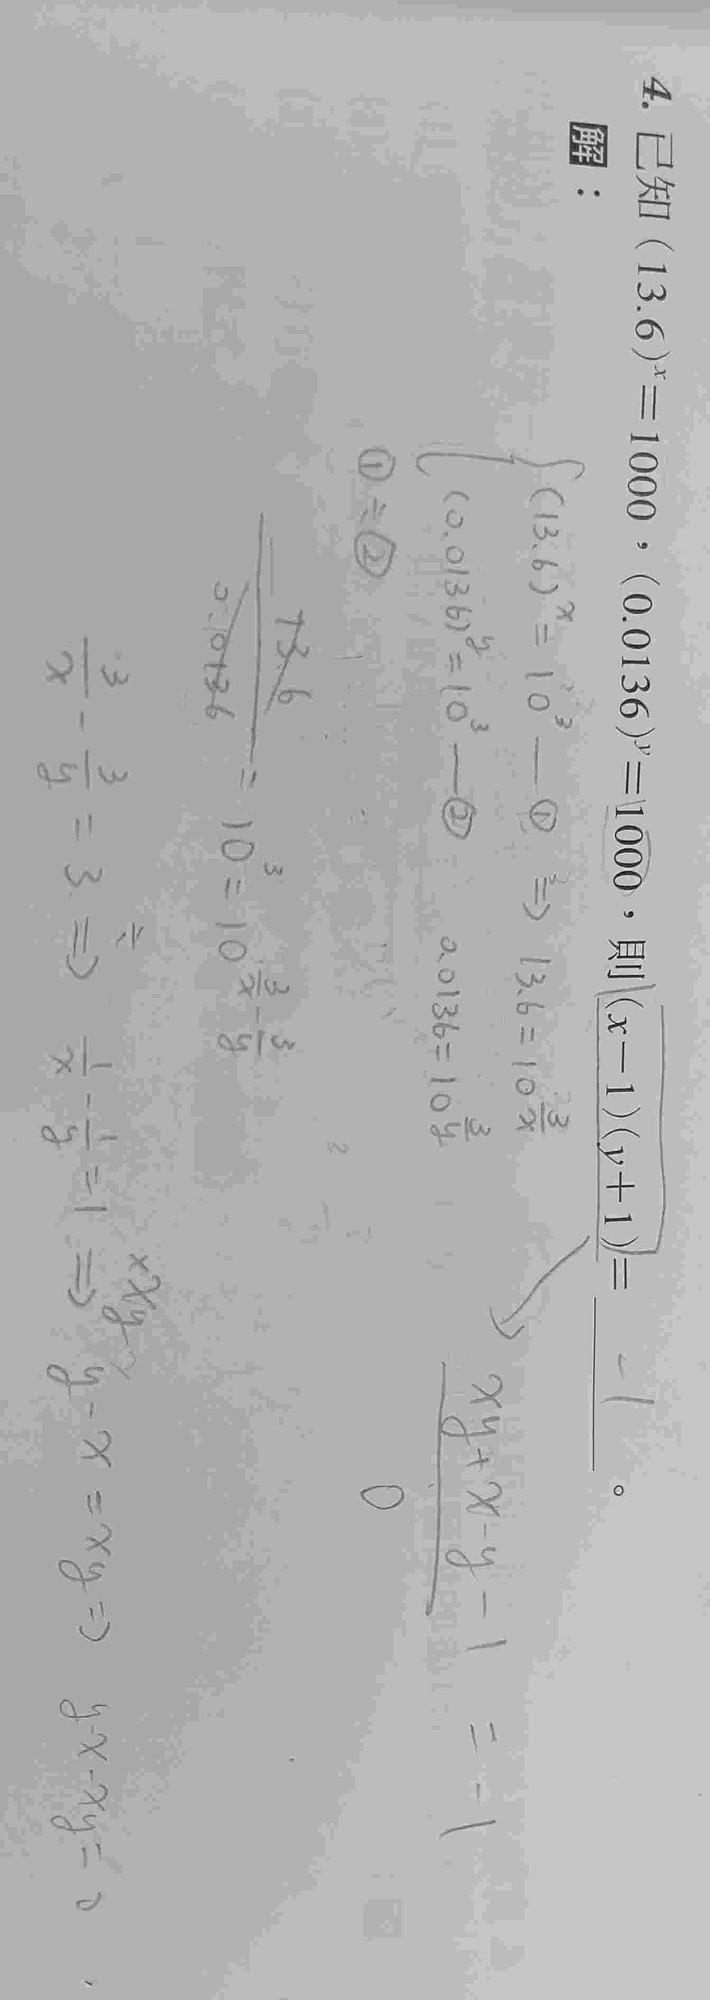 4. 已知(13.6)^x=1000,(0.0136)^y=1000,則(x-1)(y+1)= -1 。
解:
(13.6)^x = 10^3 —① ⇒ 13.6 = 10^{3/x}
(0.0136)^y = 10^3 —② 0.0136 = 10^{3/y}
xy+x-y-1 = -1
0
① ÷ ②
13.6/0.0136 = 10^3 = 10^{3/x - 3/y}
3/x - 3/y = 3 ⇒ 1/x - 1/y = 1 ⇒ ×xy y-x = xy ⇒ y-x-xy = 0